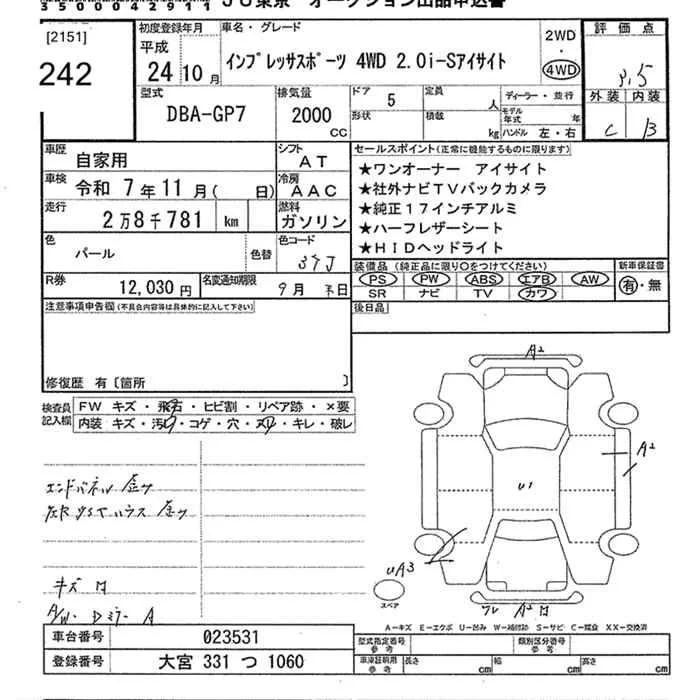 35000042911 JU東京 オークション出品申込書
[2151]
242
初度登録年月
平成
24 10月
車名・グレード
インプレッサスポーツ 4WD 2.0i-Sアイサイト
2WD
・
4WD
評価点
3.5
外装 内装
C B
型式
DBA-GP7
排気量
2000
CC
ドア
5
定員
人
形状
積載
kg
ディーラー・並行
モデル年式 年
ハンドル 左・右
車歴
自家用
シフト
AT
車検
令和 7年11月( 日)
冷房
AAC
走行
2万8千781 km
燃料
ガソリン
色
パール
色替
色コード
37J
R券
12,030円
名変通知期限
9月 末日
セールスポイント(正常に機能するものに限ります)
★ワンオーナー アイサイト
★社外ナビTVバックカメラ
★純正17インチアルミ
★ハーフレザーシート
★HIDヘッドライト
装備品(純正品に限り○をつけてください)
PS PW ABS エアB AW
SR ナビ TV カワ
新車保証書
有・無
後日品
注意事項申告欄(不具合内容等は具体的に記入して下さい)
修復歴 有〔箇所 〕
検査員記入欄
FW キズ・飛石・ヒビ割・リペア跡・×要
内装 キズ・汚れ・コゲ・穴・ヌリ・キレ・破レ
エンドパネル
キズ
A/W・Dミラー A
A2
A2
U1
UA3
A2
スペア
A-キズ E-エクボ U-凹み W-補修跡 S-サビ C-腐食 XX-交換済
車台番号 023531
登録番号 大宮 331 つ 1060
型式指定番号 参考
類別区分番号 参考
車庫証明用 参考
長さ cm
幅 cm
高さ cm